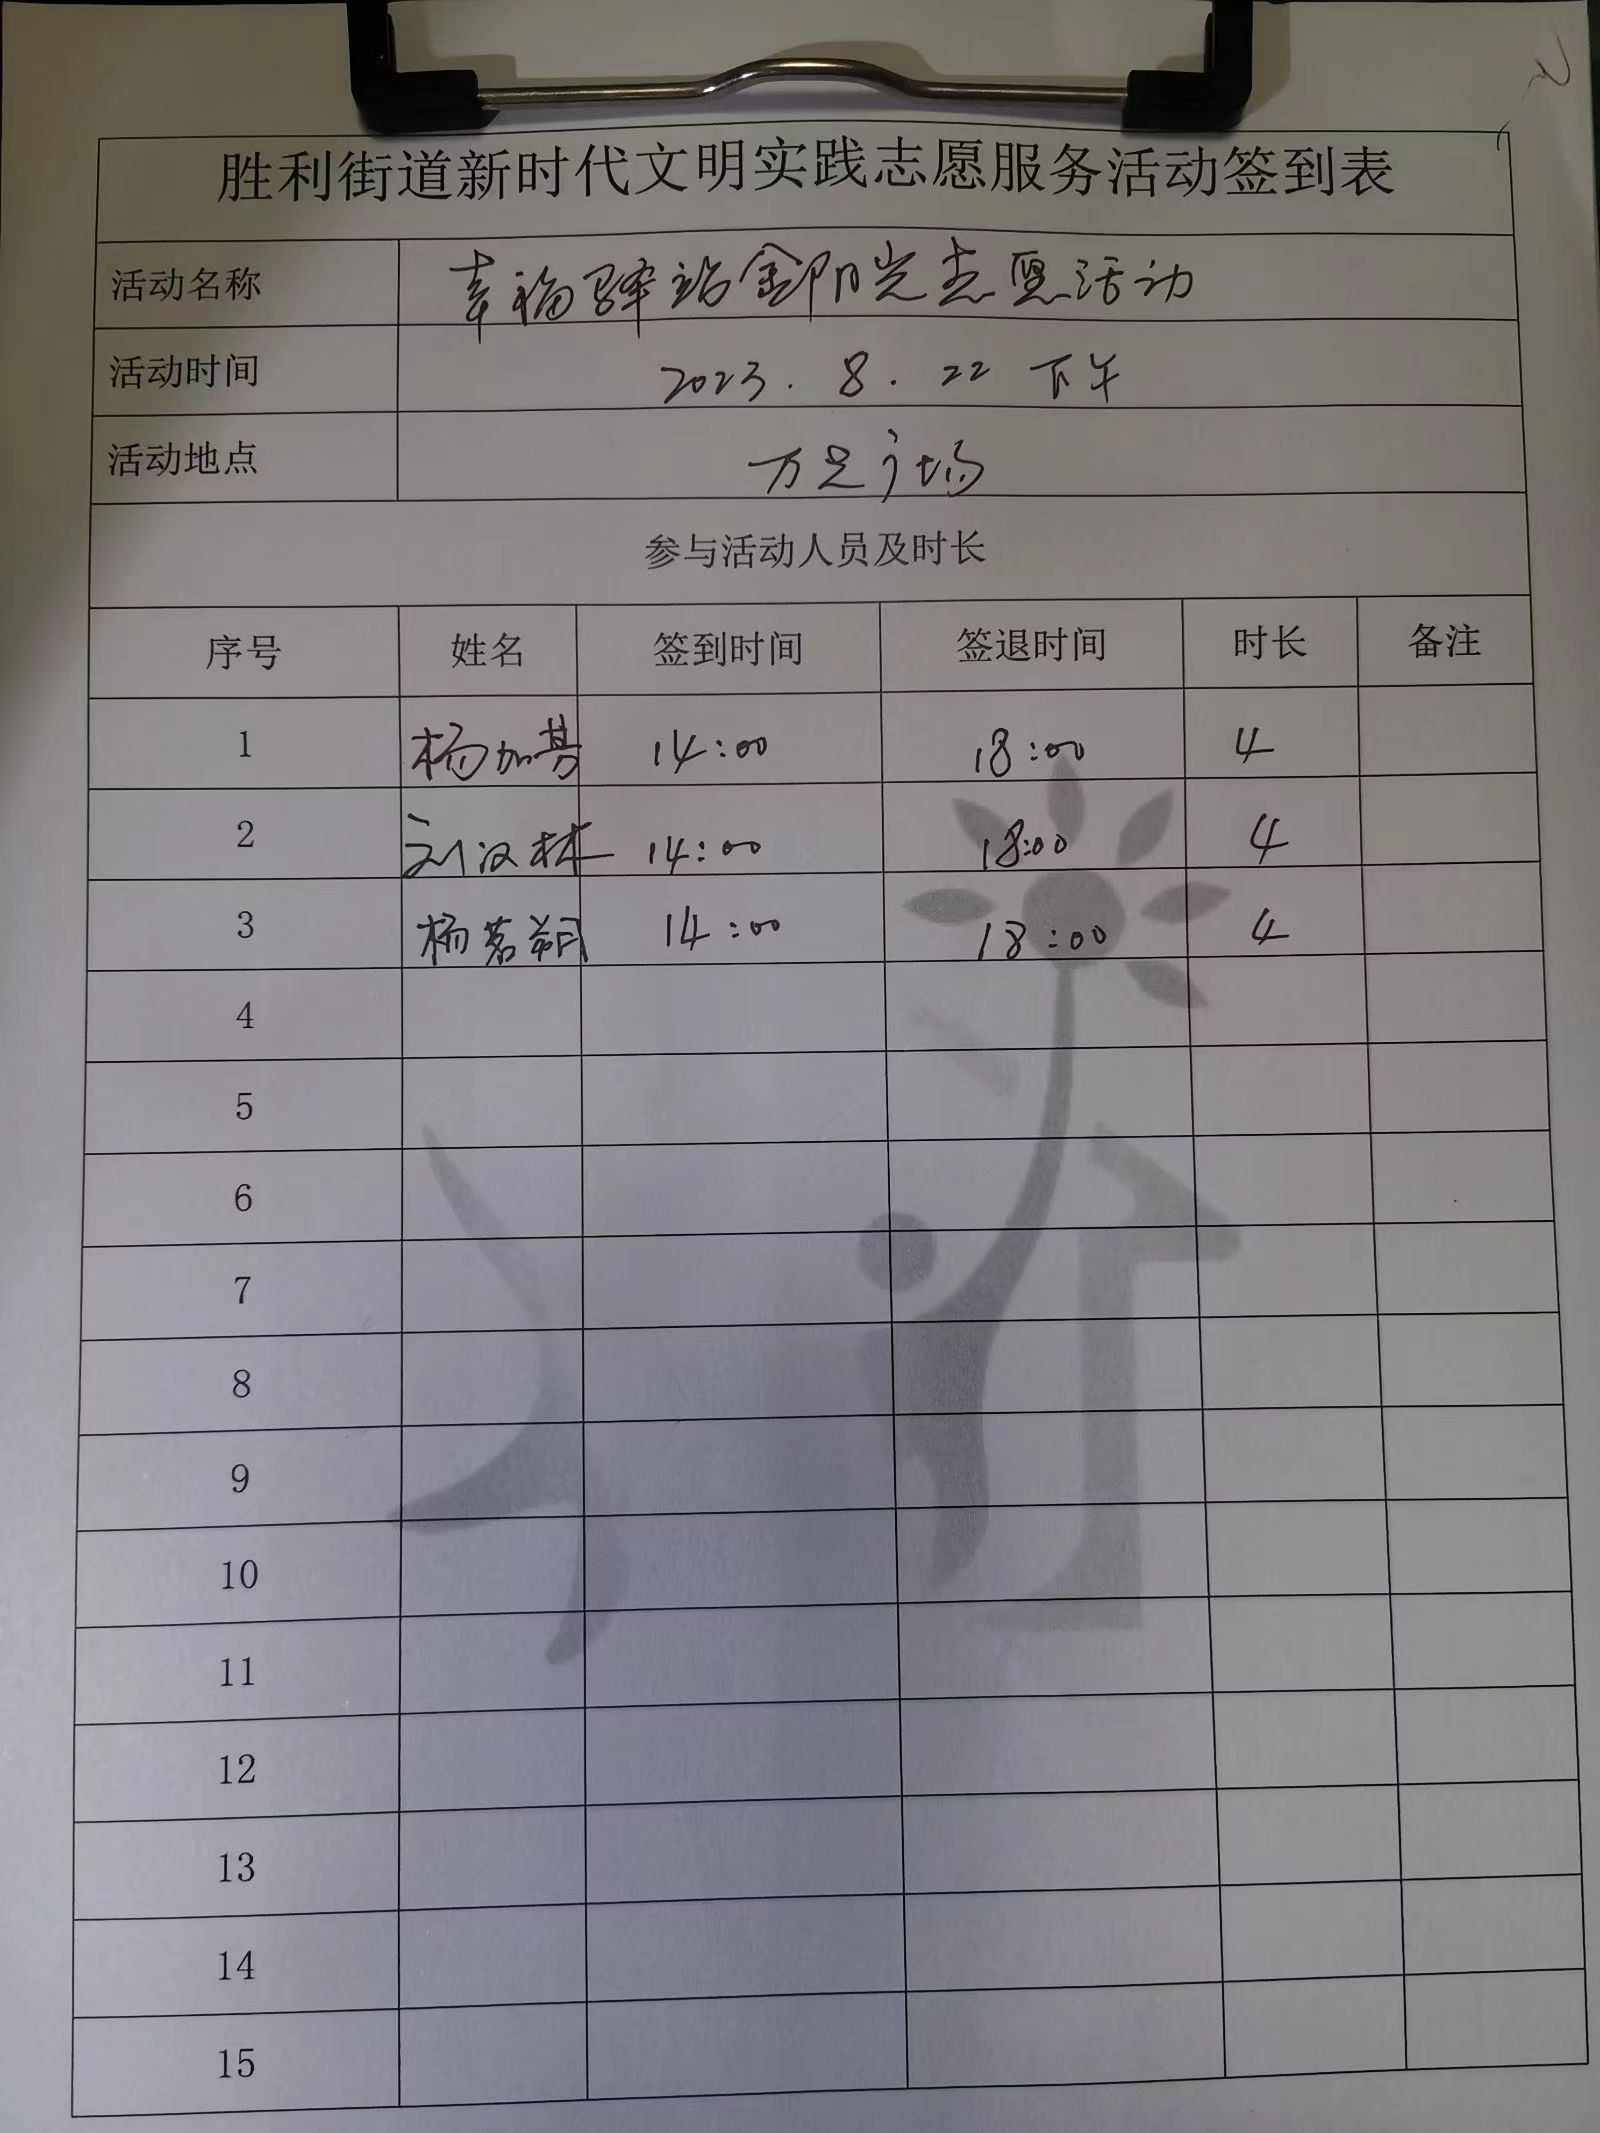 胜利街道新时代文明实践志愿服务活动签到表
活动名称 幸福驿站金阳光志愿活动
活动时间 2023.8.22 下午
活动地点 万达广场
参与活动人员及时长
序号 姓名 签到时间 签退时间 时长 备注
1 杨加 14:00 18:00 4
2 刘汉林 14:00 18:00 4
3 杨茗 14:00 18:00 4
4
5
6
7
8
9
10
11
12
13
14
15